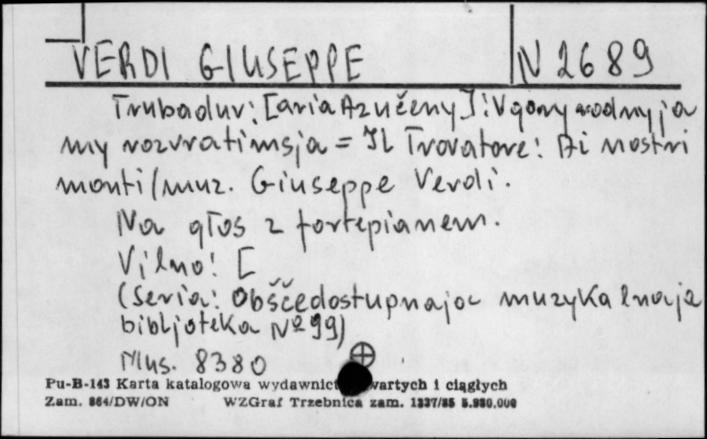 VERDI GIUSEPPE N 2689
Trubadur: [aria Azučeny]: V gory rodnyja
my vozvratimsja = Il Trovatore: Ai nostri
monti / muz. Giuseppe Verdi.
Na głos z fortepianem.
Vilno: [
(Seria: Obščedostupnaja muzykalnaja
bibljoteka № 99)
Mus. 8380
Pu-B-143 Karta katalogowa wydawnict wartych i ciągłych
Zam. 864/DW/ON WZGraf Trzebnica zam. 1337/85 5.980,000